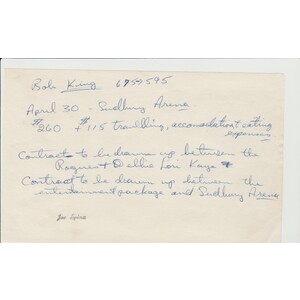 Bob King 6750595
April 30 - Sudbury Arena
$260 + $115 travelling, accomodation eating
expenses
Contract to be drawn up between the
Rogues + Debbie Lori Kaye
Contract to be drawn up between the
entertainment package and Sudbury Arena